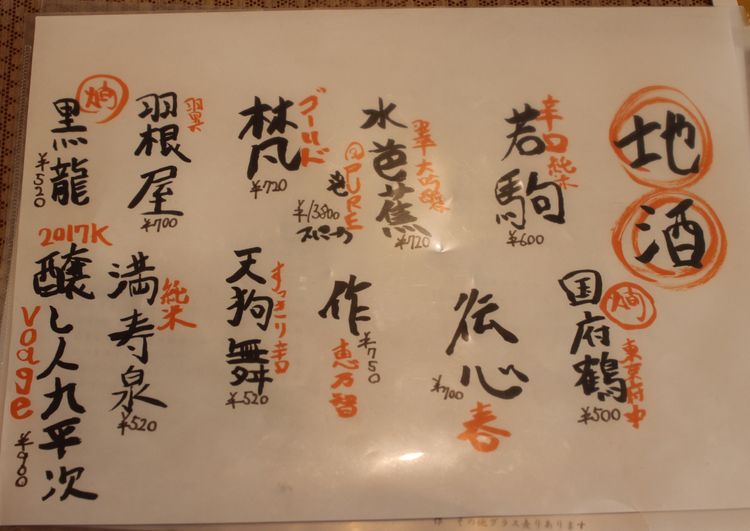 地酒
辛口純米
若駒
¥600
水芭蕉
¥720
@PURE
泡
¥13800
ゴールド
梵
¥720
羽根屋
¥700
燗
黒龍
¥520
国府鶴
燗
東京府中
¥500
伝心
¥700
春
作
¥750
恵乃智
すっきり辛口
天狗舞
¥520
純米
満寿泉
¥520
2017K
醸し人九平次
voage
¥900
その他グラス売りあります